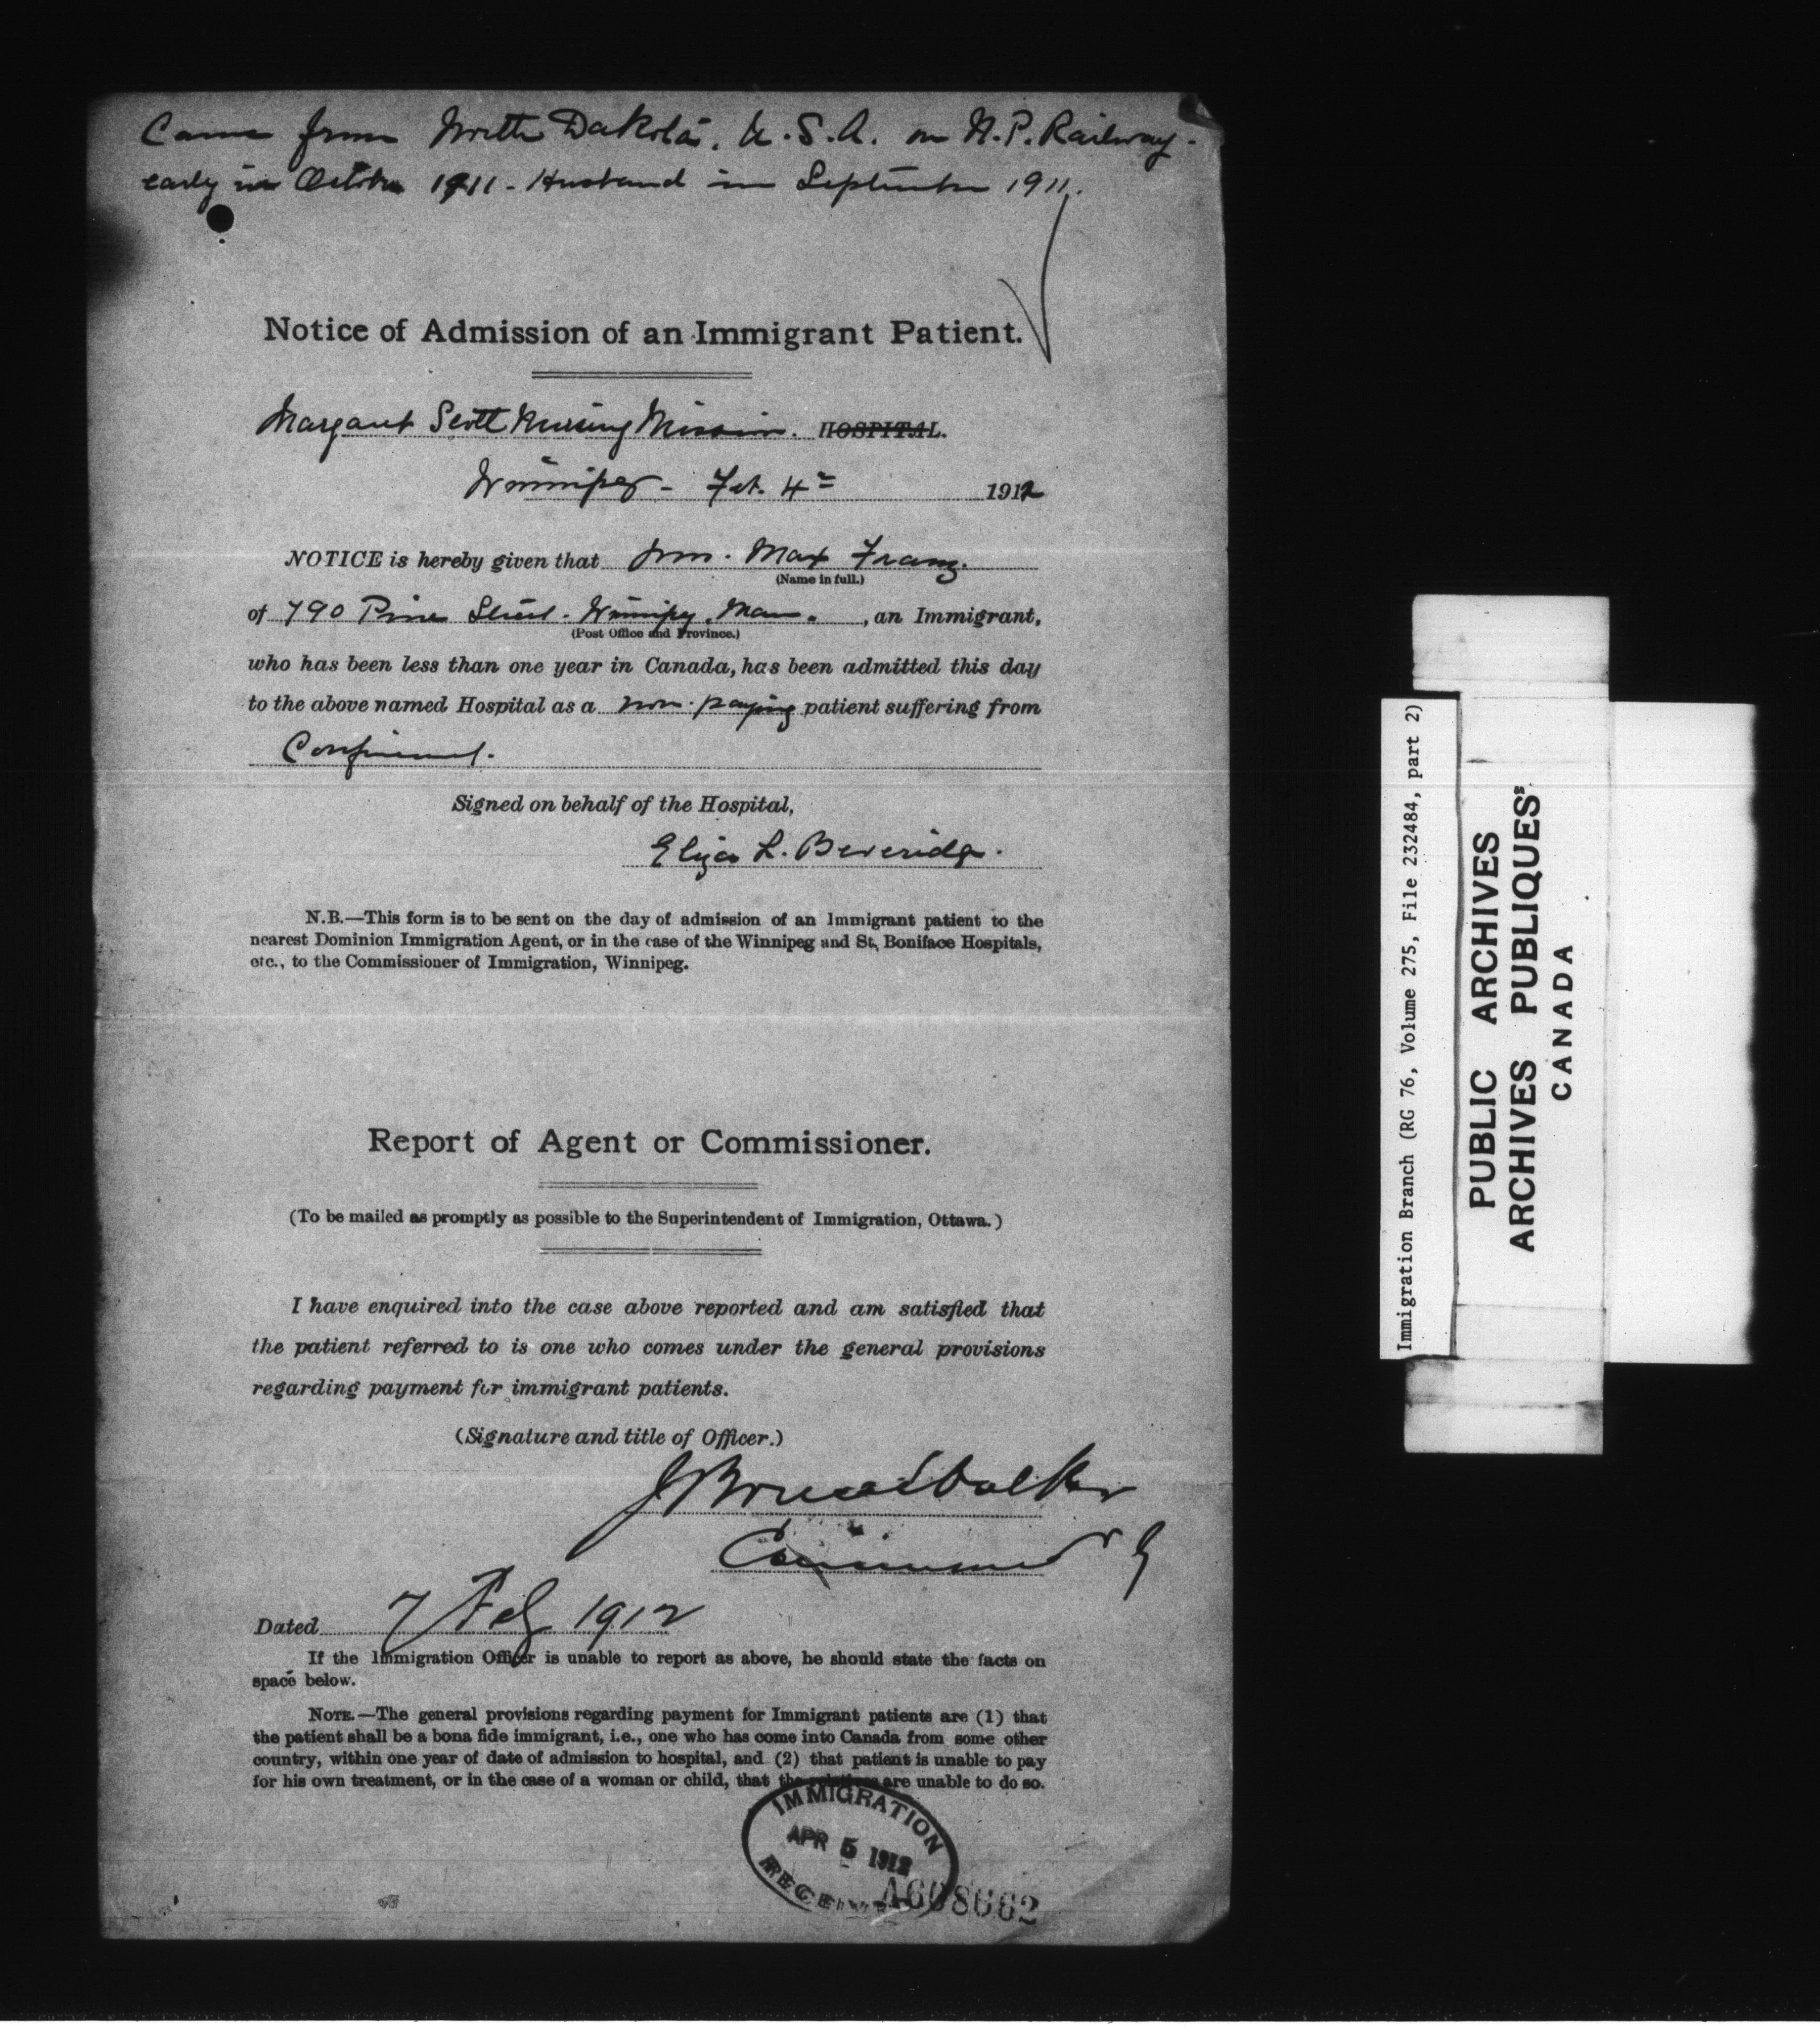 Came from North Dakota, U.S.A. on N.P. Railway.
early in October 1911 - Husband in September 1911.
Notice of Admission of an Immigrant Patient.
Margaret Scott Nursing Mission. HOSPITAL.
Winnipeg - Feb. 4th 1912
NOTICE is hereby given that Mrs. Max Franz.
(Name in full.)
of 790 Pine Street. Winnipeg. Man., an Immigrant,
(Post Office and Province.)
who has been less than one year in Canada, has been admitted this day
to the above named Hospital as a non-paying patient suffering from
Confinement.
Signed on behalf of the Hospital,
Eliza L. Beveridge.
N.B.—This form is to be sent on the day of admission of an Immigrant patient to the
nearest Dominion Immigration Agent, or in the case of the Winnipeg and St, Boniface Hospitals,
etc., to the Commissioner of Immigration, Winnipeg.
Report of Agent or Commissioner.
(To be mailed as promptly as possible to the Superintendent of Immigration, Ottawa.)
I have enquired into the case above reported and am satisfied that
the patient referred to is one who comes under the general provisions
regarding payment for immigrant patients.
(Signature and title of Officer.)
J Bruce Walker
Commissioner
Dated 7 Feby 1912
If the Immigration Officer is unable to report as above, he should state the facts on
space below.
NOTE.—The general provisions regarding payment for Immigrant patients are (1) that
the patient shall be a bona fide immigrant, i.e., one who has come into Canada from some other
country, within one year of date of admission to hospital, and (2) that patient is unable to pay
for his own treatment, or in the case of a woman or child, that the relatives are unable to do so.
IMMIGRATION
APR 5 1912
RECEIVED
A608662
Immigration Branch (RG 76, Volume 275, File 232484, part 2)
PUBLIC ARCHIVES
ARCHIVES PUBLIQUES
CANADA